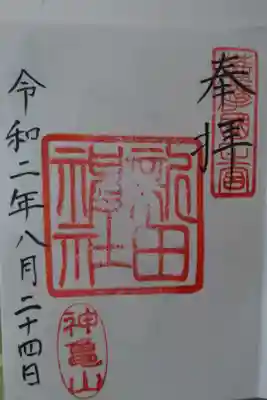 奉拝
新田
神社
令和二年八月二十四日
神亀山